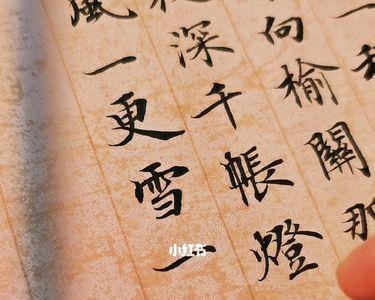 一
向榆關那
深千帳燈
風一更雪一
小红书